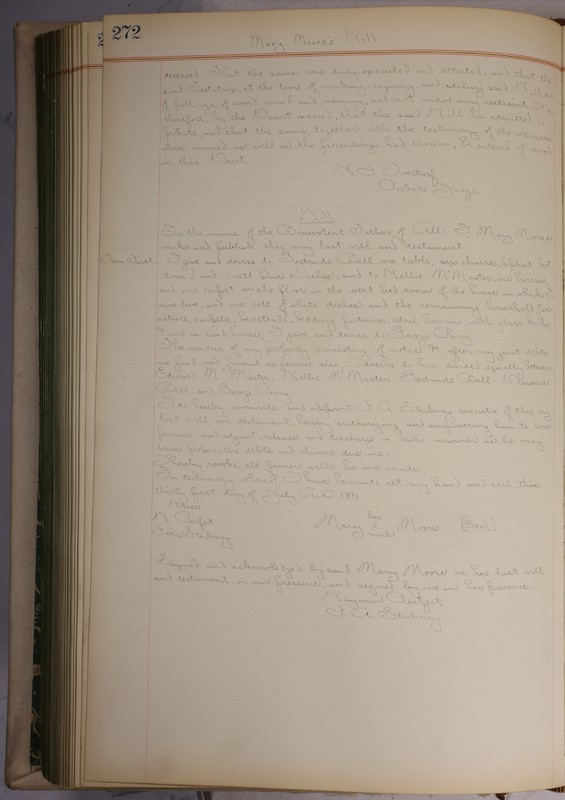 272
Mary Moore's Will
deceased. That the same was duly executed and attested; and that the
said Testatrix at the time of making, signing and sealing said Will was
of full age of sound mind and memory, and not under any restraint. It is
therefore by the Court ordered, that the said Will be admitted to
probate, and that the same, together with the testimony of the witnesses
above named, as well as the proceedings had therein, be entered of record
in this Court.
Probate Judge
Will
In the name of the Benevolent Father of All: I, Mary Moore, do
make and publish this my last will and testament.
Item First I give and devise to Gertrude Bell one table, six chairs,
and 1 sett blue dishes; and to Nellie McMaster, one bureau
and one carpet on the floor in the west bed room of the house in which I
now live, and one sett of white dishes; and the remaining household fur-
niture, carpets, bedsteads, bedding, pictures, stove, bureau, with glass
& used in said house, I give and devise to George Perry.
The residue of my property consisting of notes & after my just debts
are paid and funeral expenses also, I desire to have divided equally between
McMaster, Nellie McMaster, Gertrude Bell,
Bell and George Perry.
I do hereby nominate and appoint executor of this my
last will and testament hereby authorizing and empowering him to com-
promise and adjust, release and discharge in such manner as he may
deem proper the debts and claims due me.
I hereby revoke all former wills by me made.
In testimony whereof, I have hereunto set my hand and seal this
thirty first day of July A.D. 1891
her
Mary x Moore [Seal]
mark
Signed and acknowledged by said Mary Moore as her last will
and testament, in our presence, and signed by us in her presence.